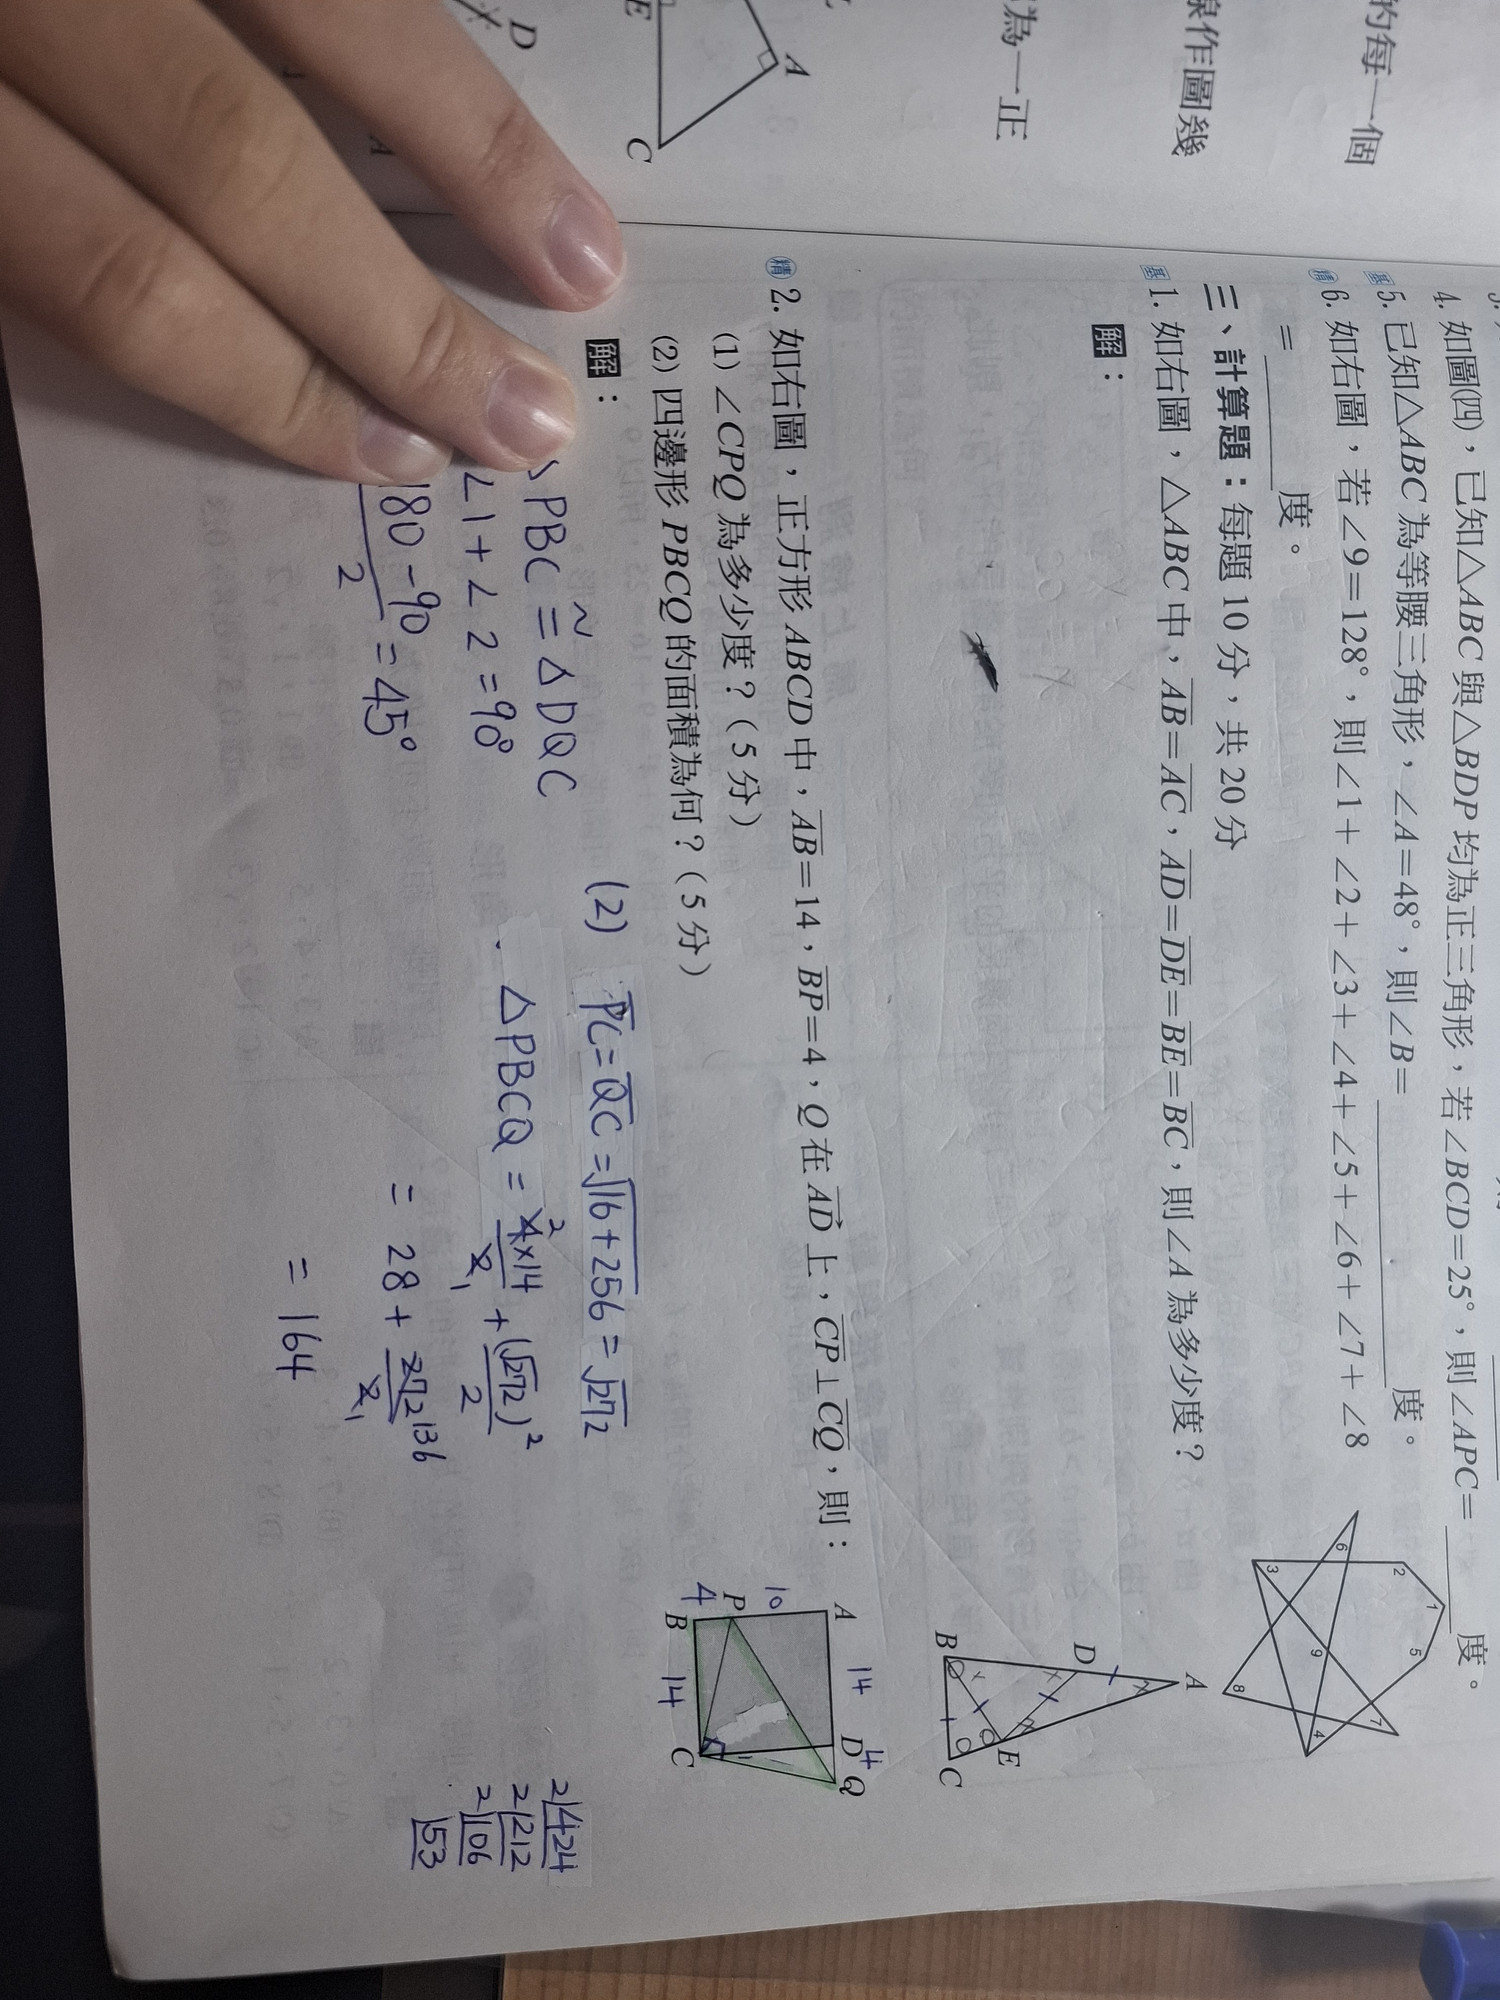 的每一個
線作圖幾
為一正
A
E
C
D
A
4. 如圖(四)，已知△ABC與△BDP均為正三角形，若∠BCD=25°，則∠APC=______度。
基 5. 已知△ABC為等腰三角形，∠A=48°，則∠B=______度。
精 6. 如右圖，若∠9=128°，則∠1+∠2+∠3+∠4+∠5+∠6+∠7+∠8
=______度。
1
2
5
6
3
9
7
8
4
三、計算題：每題10分，共20分
基 1. 如右圖，△ABC中，AB=AC，AD=DE=BE=BC，則∠A為多少度？
解：
A
D
E
B
C
精 2. 如右圖，正方形ABCD中，AB=14，BP=4，Q在AD上，CP⊥CQ，則：
(1) ∠CPQ為多少度？(5分)
(2) 四邊形PBCQ的面積為何？(5分)
解：
A 14 D 4 Q
10
P
4
B 14 C
△PBC≅△DQC
∠1+∠2=90°
180-90/2=45°
(2) PC=QC=√16+256=√272
△PBCQ=4×14/2+(√272)²/2
2
1
=28+272/2
136
1
=164
2|424
2|212
2|106
53